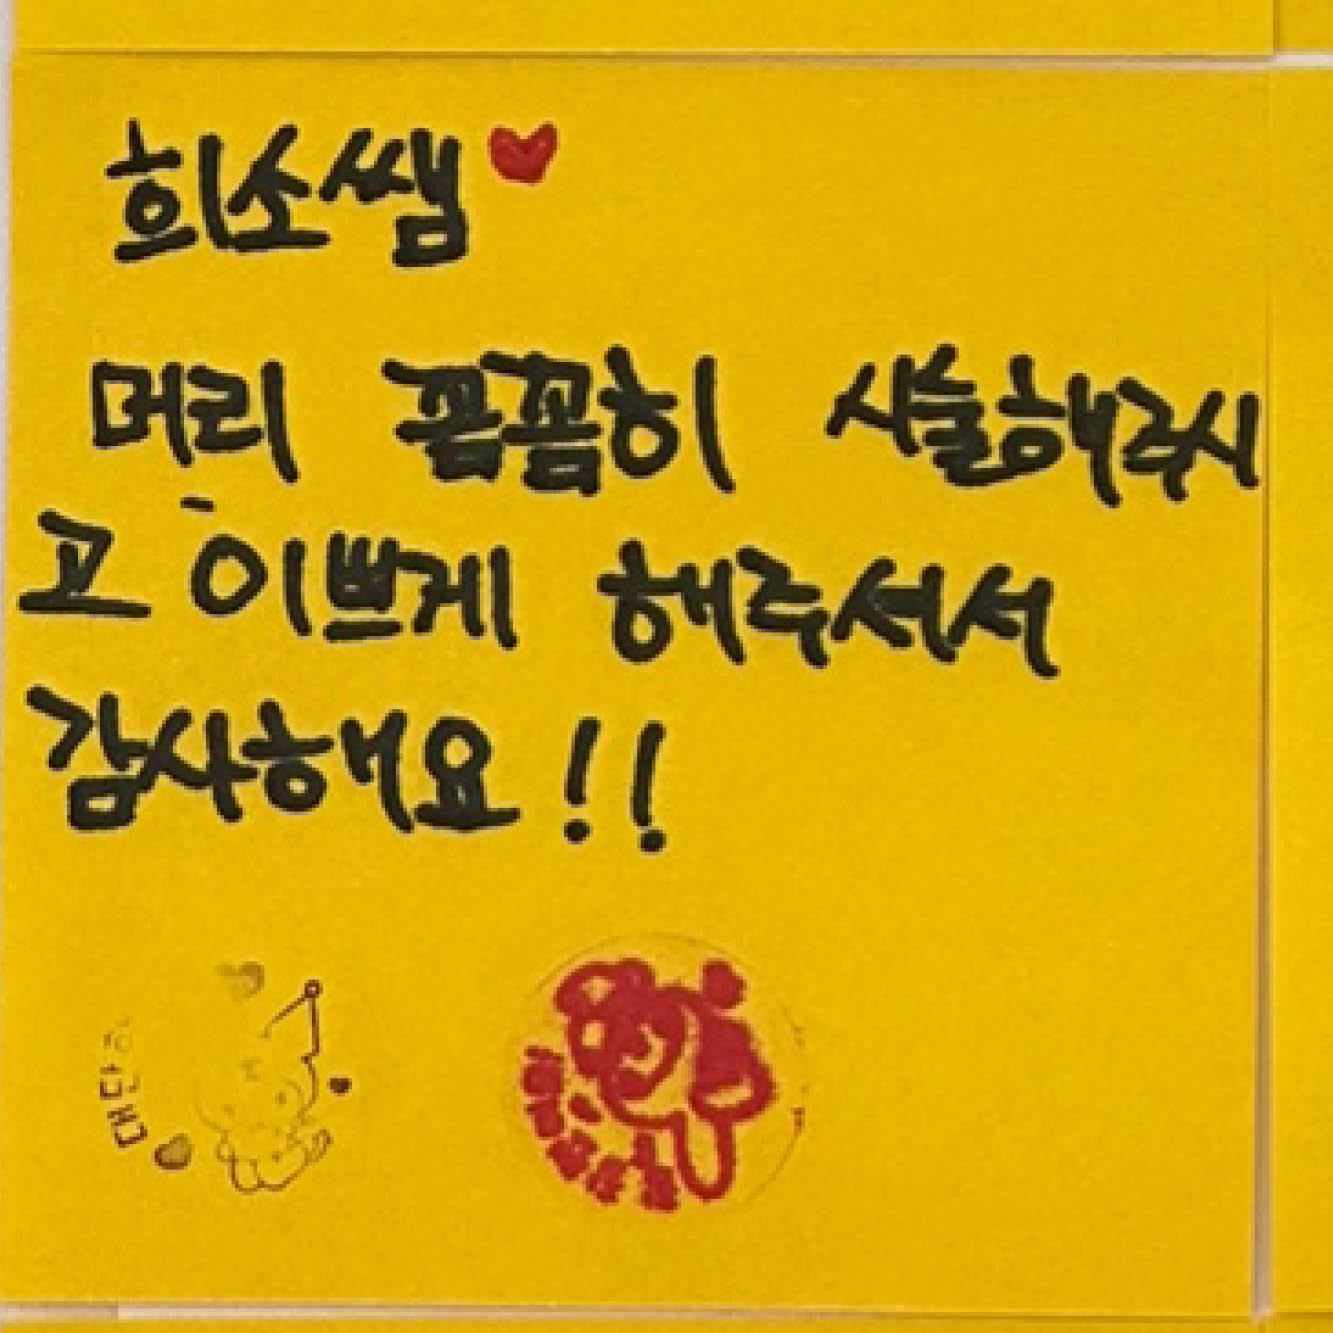 희소쌤♥
머리 꼼꼼히 시술해주시
고 이쁘게 해주서서
감사해요!!